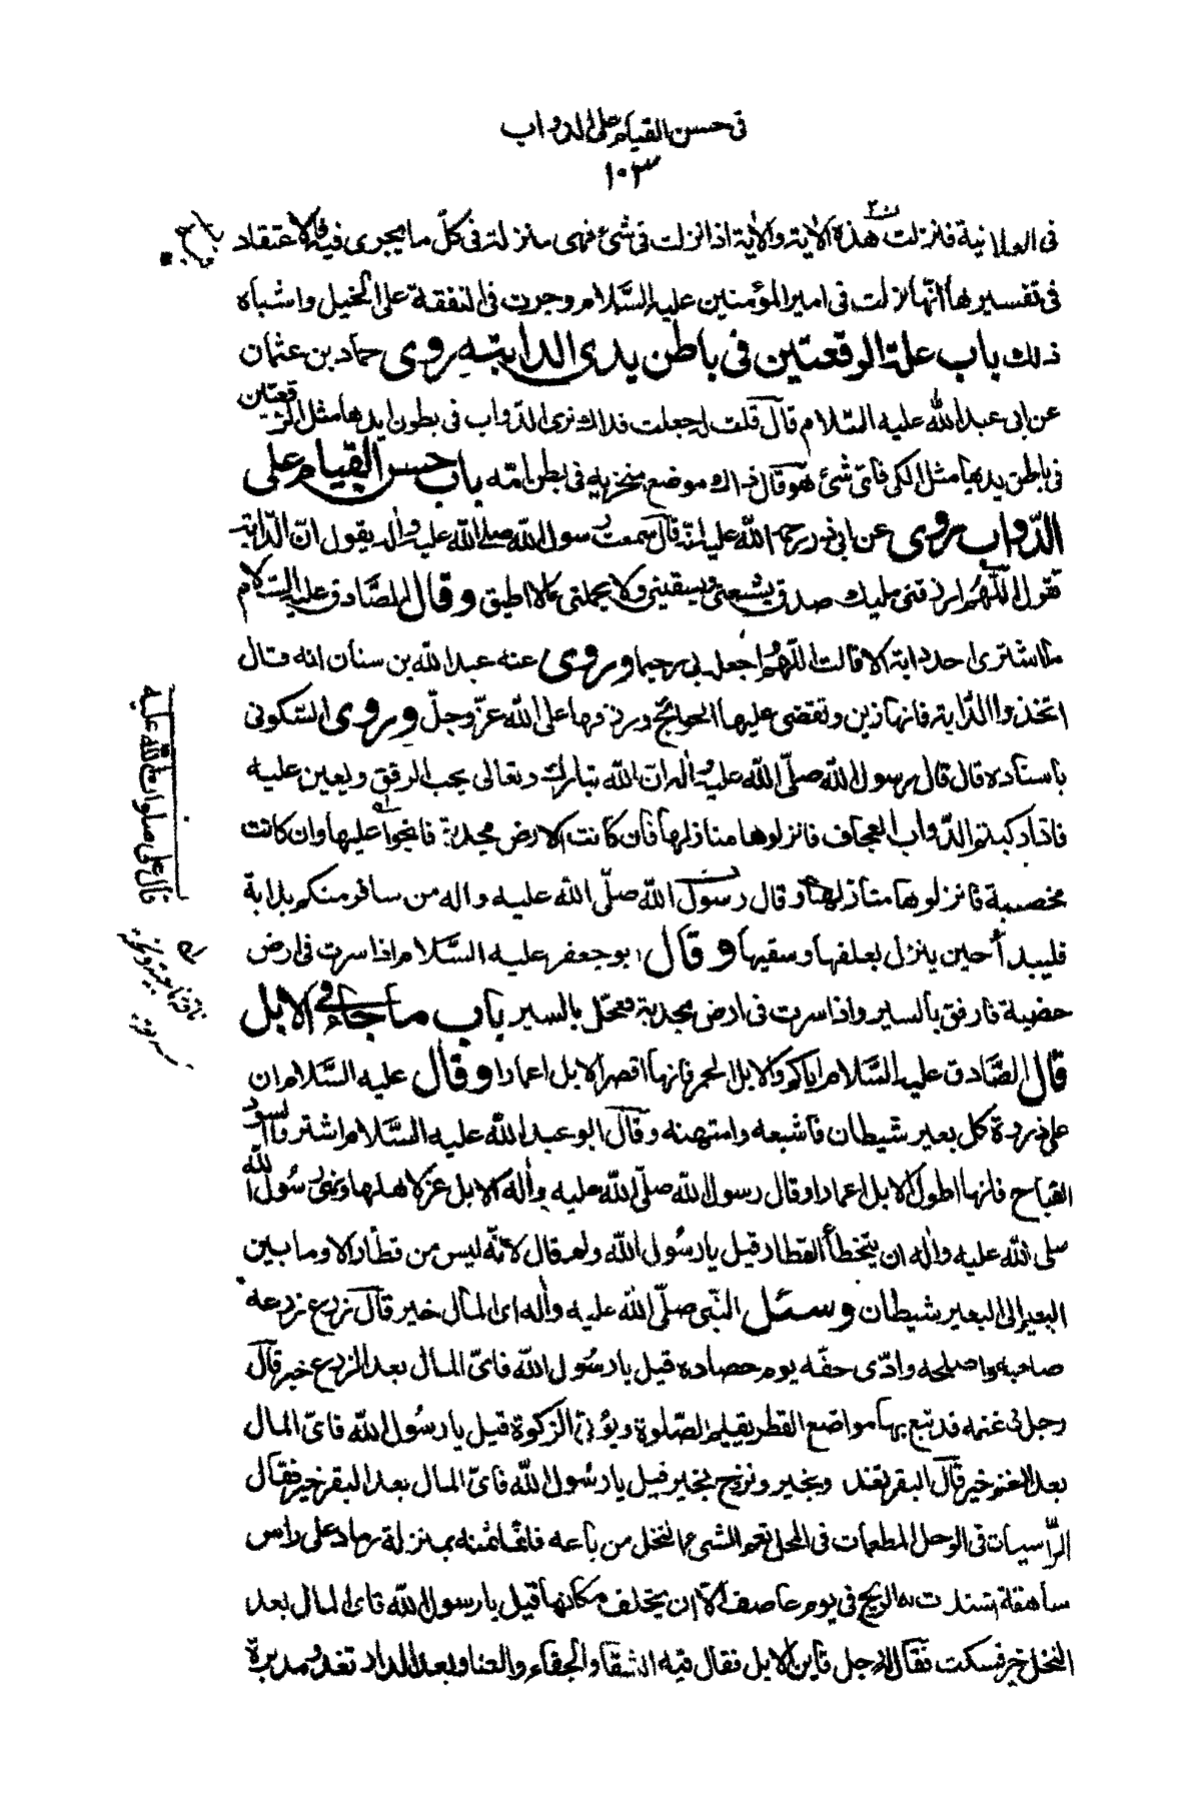 فى حسن القيام على الدواب
١٠٣
فى العلانية فنزلت هذه الاية والاية اذا نزلت فى شئ فهى منزلة فى كلّ ما يجرى فيه فالاعتقاد
فى تفسيرها انّها نزلت فى امير المؤمنين عليه السّلام وجرت فى النفقة على الخيل واشباه
ذلك باب علة الرقعتين فى باطن يدى الدابّة روى حماد بن عثمان
عن ابى عبد الله عليه السّلام قال قلت له جعلت فداك نرى الدّواب فى بطون ايديها مثل الرقعتين
فى باطن يديها مثل الكى فاىّ شئ هو قال ذاك موضع منخريه فى بطن امّه باب حسن القيام على
الدّواب روى عن ابى ذر رحمة الله عليه انّه قال سمعت رسول الله صلى الله عليه وآله يقول انّ الدّابة
تقول اللّهم ارزقنى مليك صدق يشبعنى ويسقينى ولا يحملنى ما لا اطيق وقال الصّادق عليه السّلام
ما اشترى احد دابة الا قالت اللّهم اجعله بى رحيما وروى عنه عبد الله بن سنان انه قال
اتخذوا الدّابة فانها زين وتقضى عليها الحوائج ورزقها على الله عزّ وجلّ وروى السّكونى
باسناده قال قال رسول الله صلّى الله عليه وآله ان الله تبارك وتعالى يحب الرفق ويعين عليه
فاذا ركبتم الدّواب العجاف فانزلوها منازلها فان كانت الارض مجدبة فانجوا عليها وان كانت
مخصبة فانزلوها منازلها وقال رسول الله صلّى الله عليه واله من سافر منكم بدابة
فليبدأ حين ينزل بعلفها وسقيها وقال ابو جعفر عليه السّلام اذا سرت فى ارض
خصبة فارفق بالسير واذا سرت فى ارض مجدبة فعجّل بالسير باب ما جاء فى الابل
قال الصّادق عليه السّلام اياكم والابل الحمر فانها اقصر الابل اعمارا وقال عليه السّلام ان
على ذروة كل بعير شيطان فاشبعه وامتهنه وقال ابو عبد الله عليه السّلام اشتروا السود
القباح فانها اطول الابل اعمارا وقال رسول الله صلّى الله عليه وآله الابل عزّ لاهلها ونهى رسول الله
صلى الله عليه وآله ان يتخطأ القطار قيل يا رسول الله ولم قال لانّه ليس من قطار الا وما بين
البعير الى البعير شيطان وسئل النّبى صلّى الله عليه وآله اى المال خير قال زرع زرعه
صاحبه واصلحه وادّى حقّه يوم حصاده قيل يا رسول الله فاىّ المال بعد الزرع خير قال
رجل فى غنمه قد تبع بها مواضع القطر يقيم الصّلوة ويؤتى الزكوة قيل يا رسول الله فاىّ المال
بعد الغنم خير قال البقر تغدو بخير وتروح بخير قيل يا رسول الله فاىّ المال بعد البقر خير فقال
الرّاسيات فى الوحل المطعمات فى المحل نعم الشئ النخل من باعه فانّما ثمنه بمنزلة رماد على راس
شاهقة اشتدت به الريح فى يوم عاصف الا ان يخلف مكانها قيل يا رسول الله فاى المال بعد
النخل خير فسكت فقال له رجل فاين الابل فقال فيه الشقاء والجفاء والعناء وبعد الدار تغدو مدبرة
قال على صلوات الله عليه